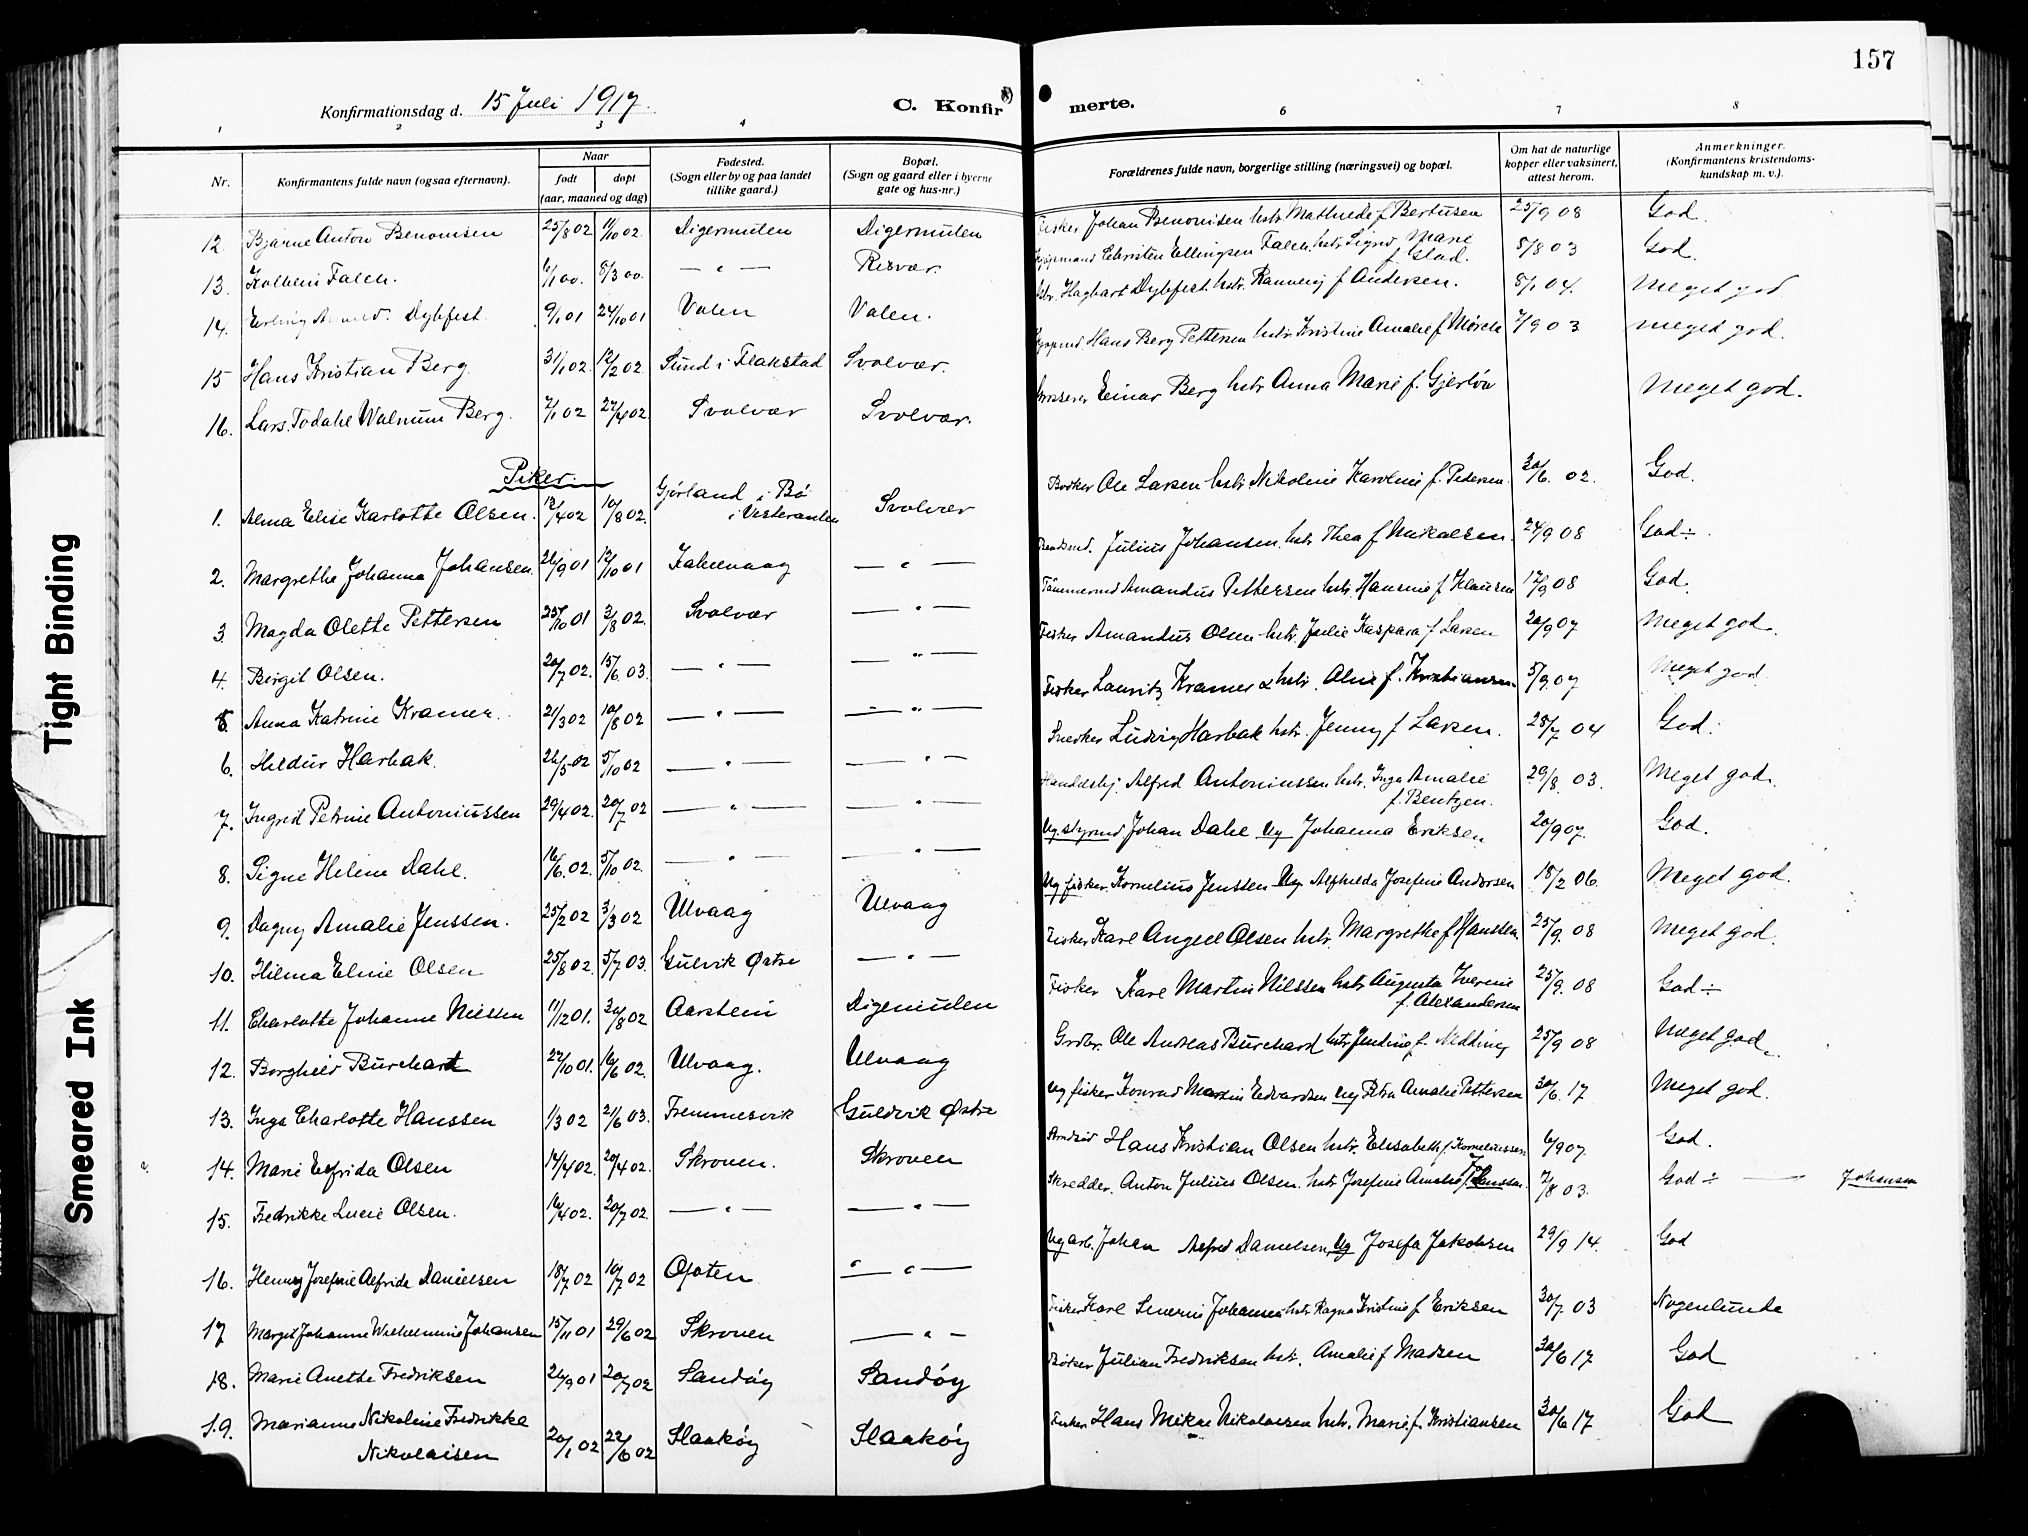 157
Konfirmationsdag d. 15 Juli 1917.
C. Konfir merte.
1 2 3 4 6 7 8
Nr.
Konfirmantens fulde navn (ogsaa efternavn).
Naar
født døpt
(aar, maaned og dag)
Fødested.
(Sogn eller by og paa landet
tillike gaard.)
Bopæl.
(Sogn og gaard eller i byerne
gate og hus-nr.)
Forældrenes fulde navn, borgerlige stilling (næringsvei) og bopæl.
Om hat de naturlige
kopper eller vaksinert,
attest herom.
Anmerkninger.
(Konfirmantens kristendoms-
kundskap m. v.).
12. Bjarne Anton Benonisen 25/8 02 11/10 02 Digermulen Digermulen Fisker Johan Benonisen hstr Mathilde f Bertusen 25/9 08 God.
13. Kolbein Falch. 6/1 00. 8/3 00. — " — Risvær. Christen Ellingsen Falch. hstr. Signe Marie
f Glad. 5/8 03 God.
14. Erling Dybfest. 9/1 01 24/10 01 Valen Valen. Hagbart Dybfest. hstr. Rannveig f Andersen. 8/1 04. Meget god
15 Hans Kristian Berg. 31/1 02. 12/2 02. Sund i Flakstad Svolvær. Hans Berg Pettersen hstr. Kristine Amalie f Mørch 7/9 03 Meget god.
16. Lars Todahl Walnum Berg. 7/1 02 27/4 02. Svolvær Svolvær. Einar Berg hstr Anna Marie f. Gjerløv Meget god.
Piker.
1. Alma Elise Karlotte Olsen. 12/4 02 10/8 02. Gjørland i Bø
i Vesteraalen Svolvær Ole Larsen hstr Nikoline Karoline f. Pedersen 30/6. 02. God.
2. Margrethe Johanna Johansen. 26/9 01 12/10 01 Kabelvaag — " — Julius Johansen. hstr Thea f Mikalsen. 24/9 08 God ÷.
3. Magda Olette Pettersen 25/10 01 3/8 02. Svolvær — " — Tømmermd Amandus Pettersen hstr. Hansine f Klausen 17/9 08 God.
4. Birgit Olsen. 20/7 02. 15/6. 03. — " — — " — Fisker Amandus Olsen hstr. Julie Kaspara f Larsen 20/9 07 Meget god.
5. Anna Katrine Kramer. 21/3 02 10/8 02 — " — — " — Fisker Lauritz Kramer & hstr. Aline f. Kristiansen 5/9. 07 Meget god.
6. Hildur Harbak. 26/5 02 5/10 02 — " — — " — Snedker Ludvig Harbak hstr. Jenny f Larsen. 25/7 04 God.
7. Ingrid Petrine Antoniussen 29/4 02. 20/7 02 — " — — " — Alfred Antoniussen hstr. Inga Amalie
f. Bentzen. 29/8. 03. Meget god.
8. Signe Helene Dahl. 16/6. 02. 5/10 02. — " — — " — Ug. styrmd Johan Dahl Ug Johanna Eriksen 20/9 07. God.
9. Dagny Amalie Jenssen. 25/2 02 3/3 02 Ulvaag Ulvaag Ug fisker. Kornelius Jenssen Ug. Alfhilda Josefine Andersen 18/2 06. Meget god.
10. Hilma Eline Olsen 25/8 02. 5/7 03. Gulvik Østre — " — Fisker Karl Angell Olsen hstr. Margrethe f Hanssen. 25/9. 08 Meget god.
11. Charlotte Johanne Nilssen 11/12 01. 30/8 02 Aarstein Digermulen Fisker Karl Martin Nilssen hstr Augusta Iverine
f. Alexandersen 25/9. 08 God ÷
12. Borghild Burchart 22/10 01. 16/6 02. Ulvaag. Ulvaag Grdbr. Ole Andreas Burchard hstr Jentine f. Nedding 25/9 08 Meget god.
13. Inga Charlotte Hanssen 1/3 02 21/6 03. Fremmesvik Guldvik Østre Ug fisker Konrad Martin Edvardsen Ug Petra Amalie Pettersen 30/6. 17 Meget god.
14. Marie Elfrida Olsen 14/4 02. 20/4 02. Skroven. Skroven Hans Kristian Olsen hstr. Elisabeth f. Korneliussen 6/9 07. God.
15. Fredrikke Lucie Olsen. 16/4 02. 20/7 02. — " — — " — Skredder. Anton Julius Olsen. hstr Josefine Amalie f. 7/8 03. God ÷ — Johansen
16. Henny Josefine Alfrida Danielsen 18/7 02 10/7 02 Ofoten — " — Ug arb. Johan Alfred Danielsen Ug Josefa Jakobsen 29/9 14. God
17 Margit Johanne Wilhelmine Johansen 15/11 01 29/6 02 Skroven — " — Fisker Karl Johansen hstr Ragna Kristine f Eriksen 30/7. 03 Nogenlunde
18. Marie Anette Fredriksen 26/9 01 20/7 02 Sandøy Sandøy Fisker Julian Fredriksen hstr. Amalie f Madsen 30/6 17 God
19. Marianne Nikoline Fredrikke
Nikolaisen 20/1 02 22/6 02 Slaakøy Slaakøy Fisker Hans Mikal Nikolaisen hstr. Marie f. Kristiansen 30/6 17 God
Tight Binding
Smeared Ink